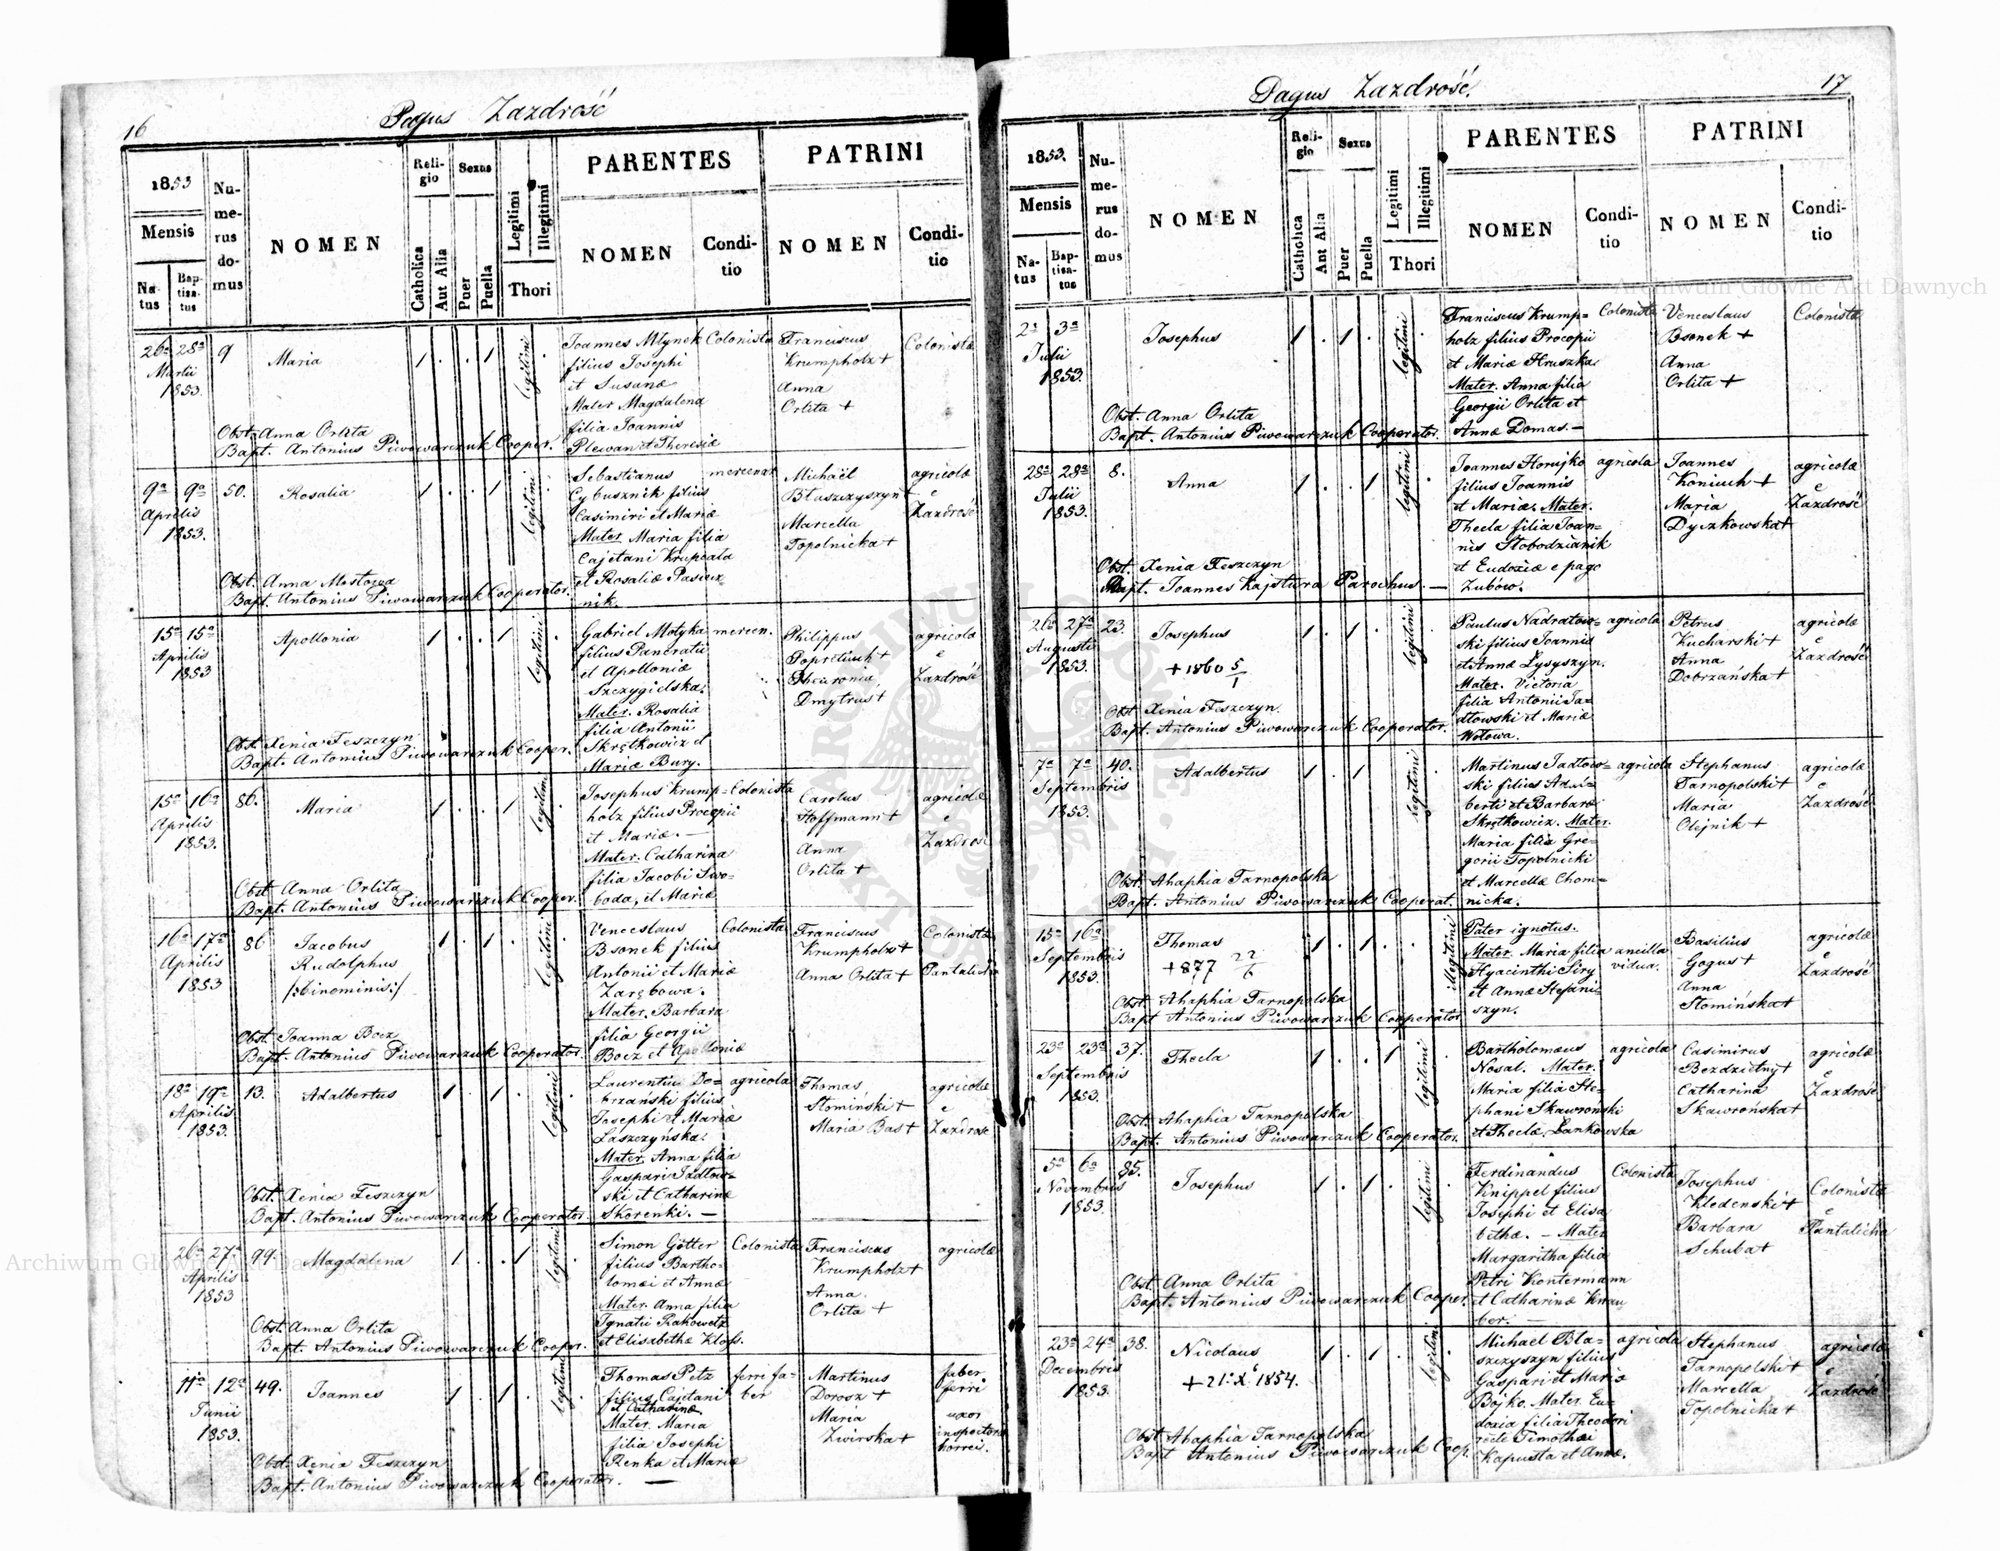 16
Pagus Zazdrość
1853
Mensis
Natus
Baptisatus
Numerus domus
NOMEN
Religio
Catholica
Aut Alia
Sexus
Puer
Puella
Legitimi
Illegitimi
Thori
PARENTES
NOMEN
Conditio
PATRINI
NOMEN
Conditio
26a 28a
Martii
1853
9
Maria
1 . . 1
legitimi
Joannes Młynek
filius Josephi
et Susanæ
Mater Magdalena
filia Joannis
Plewan et Theresiæ
Colonista
Franciscus
Krumpholz +
Anna
Orlita +
Colonistæ
Obst. Anna Orlita
Bapt. Antonius Piwowarczuk Cooper.
9a 9a
Aprilis
1853.
50.
Rosalia
1 . . 1
legitimi
Sebastianus
Cybusznik filius
Casimiri et Mariæ
Mater. Maria filia
Cajetani Krupcała
et Rosaliæ Pasiecz
nik.
mercenar
Michaël
Błaszczyszyn +
Marcella
Topolnicka +
agricolæ
e
Zazdrość
Obst. Anna Mostowa
Bapt. Antonius Piwowarczuk Cooperator.
15a 15a
Aprilis
1853
Apollonia
1 . . 1
legitimi
Gabriel Motyka
filius Pancratii
et Apolloniæ
Szczygielska.
Mater. Rosalia
filia Antonii
Skrętkowicz et
Mariæ Bury.
mercen.
Philippus
Dmytrus +
agricolæ
e
Zazdrość
Obst. Xenia Feszczyn
Bapt. Antonius Piwowarczuk Cooper.
15a 16a
Aprilis
1853.
86.
Maria
1 . . 1
legitimi
Josephus Krump=
holz filius Procopii
et Mariæ. —
Mater. Catharina
filia Jacobi Swo=
boda, et Mariæ
Colonista
Carolus
Hoffmann +
Anna
Orlita +
agricolæ
e
Zazdrość
Obst. Anna Orlita
Bapt. Antonius Piwowarczuk Cooper.
16a 17a
Aprilis
1853
86
Jacobus
Rudolphus
/:binominis:/
1 . 1 .
legitimi
Venceslaus
Bsonek filius
Antonii et Mariæ
Zarębowa.
Mater. Barbara
filia Georgii
Bocz et Apolloniæ
Colonista
Franciscus
Krumpholz +
Anna Orlita +
Colonistæ
Pantalicha
Obst. Joanna Bocz
Bapt. Antonius Piwowarczuk Cooperator.
18a 19a
Aprilis
1853.
13.
Adalbertus
1 . 1 .
legitimi
Laurentius Do=
brzański filius
Josephi et Mariæ
Łaszczyńska.
Mater. Anna filia
Gaspari Jadłow=
ski et Catharinæ
Skorenki. —
agricola
Thomas
Słomiński +
Maria Bas +
agricolæ
e
Zazdrosc
Obst. Xenia Feszczyn
Bapt. Antonius Piwowarczuk Cooperator.
26a 27a
Aprilis
1853
99.
Magdalena
1 . . 1
legitimi
Simon Götter
filius Bartho=
lomæi et Annæ
Mater. Anna filia
Ignatii Rakowetz
et Elisabethæ Kloss.
Colonista
Franciscus
Krumpholz +
Anna
Orlita +
agricolæ
Obst. Anna Orlita
Bapt. Antonius Piwowarczuk Cooper.
11a 12a
Junii
1853.
49.
Joannes
1 . 1 .
legitimi
Thomas Petz
filius Cajetani
et Catharinæ
Mater. Maria
filia Josephi
Renka et Mariæ
ferri fa=
ber
Martinus
Dorosz +
Maria
Zwirska +
faber
ferri
uxor
inspectoris
horrei.
Obst. Xenia Feszczyn
Bapt. Antonius Piwowarczuk Cooperator.
17
Pagus Zazdrość.
1853.
Mensis
Natus
Baptisatus
Numerus domus
NOMEN
Religio
Catholica
Aut Alia
Sexus
Puer
Puella
Legitimi
Illegitimi
Thori
PARENTES
NOMEN
Conditio
PATRINI
NOMEN
Conditio
2a 3a
Julii
1853.
Josephus
1 . 1 .
legitimi
Franciscus Krump=
holz filius Procopii
et Mariæ Hruszka
Mater. Anna filia
Georgii Orlita et
Annæ Domas. —
Colonista
Venceslaus
Bsonek +
Anna
Orlita +
Colonistæ
Obst. Anna Orlita
Bapt. Antonius Piwowarczuk Cooperator.
28a 28a
Julii
1853.
8.
Anna
1 . . 1
legitimi
Joannes Horujko
filius Joannis
et Mariæ. Mater.
Thecla filia Joan=
nis Słobodzianik
et Eudoxiæ e pago
Zubów.
agricola
Joannes
Koniuch +
Maria
Dyczkowska +
agricolæ
e
Zazdrość
Obst. Xenia Feszczyn
Bapt. Joannes Kajstura Parochus. —
26a 27a
Augusti
1853.
23.
Josephus
+ 1860 5/1
1 . 1 .
legitimi
Paulus Nadratow=
ski filius Joannis
et Annæ Łysyszyn.
Mater. Victoria
filia Antonii Ja=
dłowski et Mariæ
Wołowa.
agricola
Petrus
Kucharski +
Anna
Dobrzańska +
agricolæ
e
Zazdrość
Obst. Xenia Feszczyn.
Bapt. Antonius Piwowarczuk Cooperator.
7a 7a
Septembris
1853.
40.
Adalbertus
1 . 1 .
legitimi
Martinus Jadłow=
ski filius Adal=
berti et Barbaræ
Skrętkowicz. Mater.
Maria filia Gre=
gorii Topolnicki
et Marcellæ Chom=
nicka.
agricola
Stephanus
Tarnopolski +
Maria
Olejnik +
agricolæ
e
Zazdrość
Obst. Ahaphia Tarnopolska
Bapt. Antonius Piwowarczuk Cooperat.
15a 16a
Septembris
1853.
Thomas
+ 877 22/6
1 . 1 .
illegitimi
Pater ignotus.
Mater. Maria filia
Hyacinthi Siry
et Annæ Stefani=
szyn.
ancilla
vidua.
Basilius
Gogus +
Anna
Słomińska +
agricolæ
e
Zazdrość
Obst. Ahaphia Tarnopolska
Bapt Antonius Piwowarczuk Cooperator.
23a 23a
Septembris
1853.
37.
Thecla
1 . . 1
legitimi
Bartholomæus
Nosal. Mater.
Maria filia Ste=
phani Skawroński
et Theclæ Lankowska
agricola
Casimirus
Bezdzietny +
Catharina
Skawrońska +
agricolæ
e
Zazdrość
Obst. Ahaphia Tarnopolska
Bapt. Antonius Piwowarczuk Cooperator.
5a 6a
Novembris
1853.
85.
Josephus
1 . 1 .
legitimi
Ferdinandus
Knippel filius
Josephi et Elisa
bethæ. — Mater
Margaritha filia
Petri Kontermann
et Catharinæ Knau
ber. —
Colonista
Josephus
Kledenski +
Barbara
Schuba +
Colonistæ
e
Pantalicha
Obst. Anna Orlita
Bapt. Antonius Piwowarczuk Cooper.
23a 24a
Decembris
1853.
38.
Nicolaus
+ 21. X. 1854.
1 . 1 .
legitimi
Michael Bła=
szczyszyn filius
Gaspari et Mariæ
Bojko. Mater. Eu=
doxia filia Theodori
recte Timothæi
Kapusta et Annæ.
agricola
Stephanus
Tarnopolski +
Marcella
Topolnicka +
agricolæ
e
Zazdrość
Obst. Ahaphia Tarnopolska
Bapt Antonius Piwowarczuk Coop.
Archiwum Główne Akt Dawnych
Archiwum Główne Akt Dawnych
ARCHIWUM GŁÓWNE AKT DAWNYCH